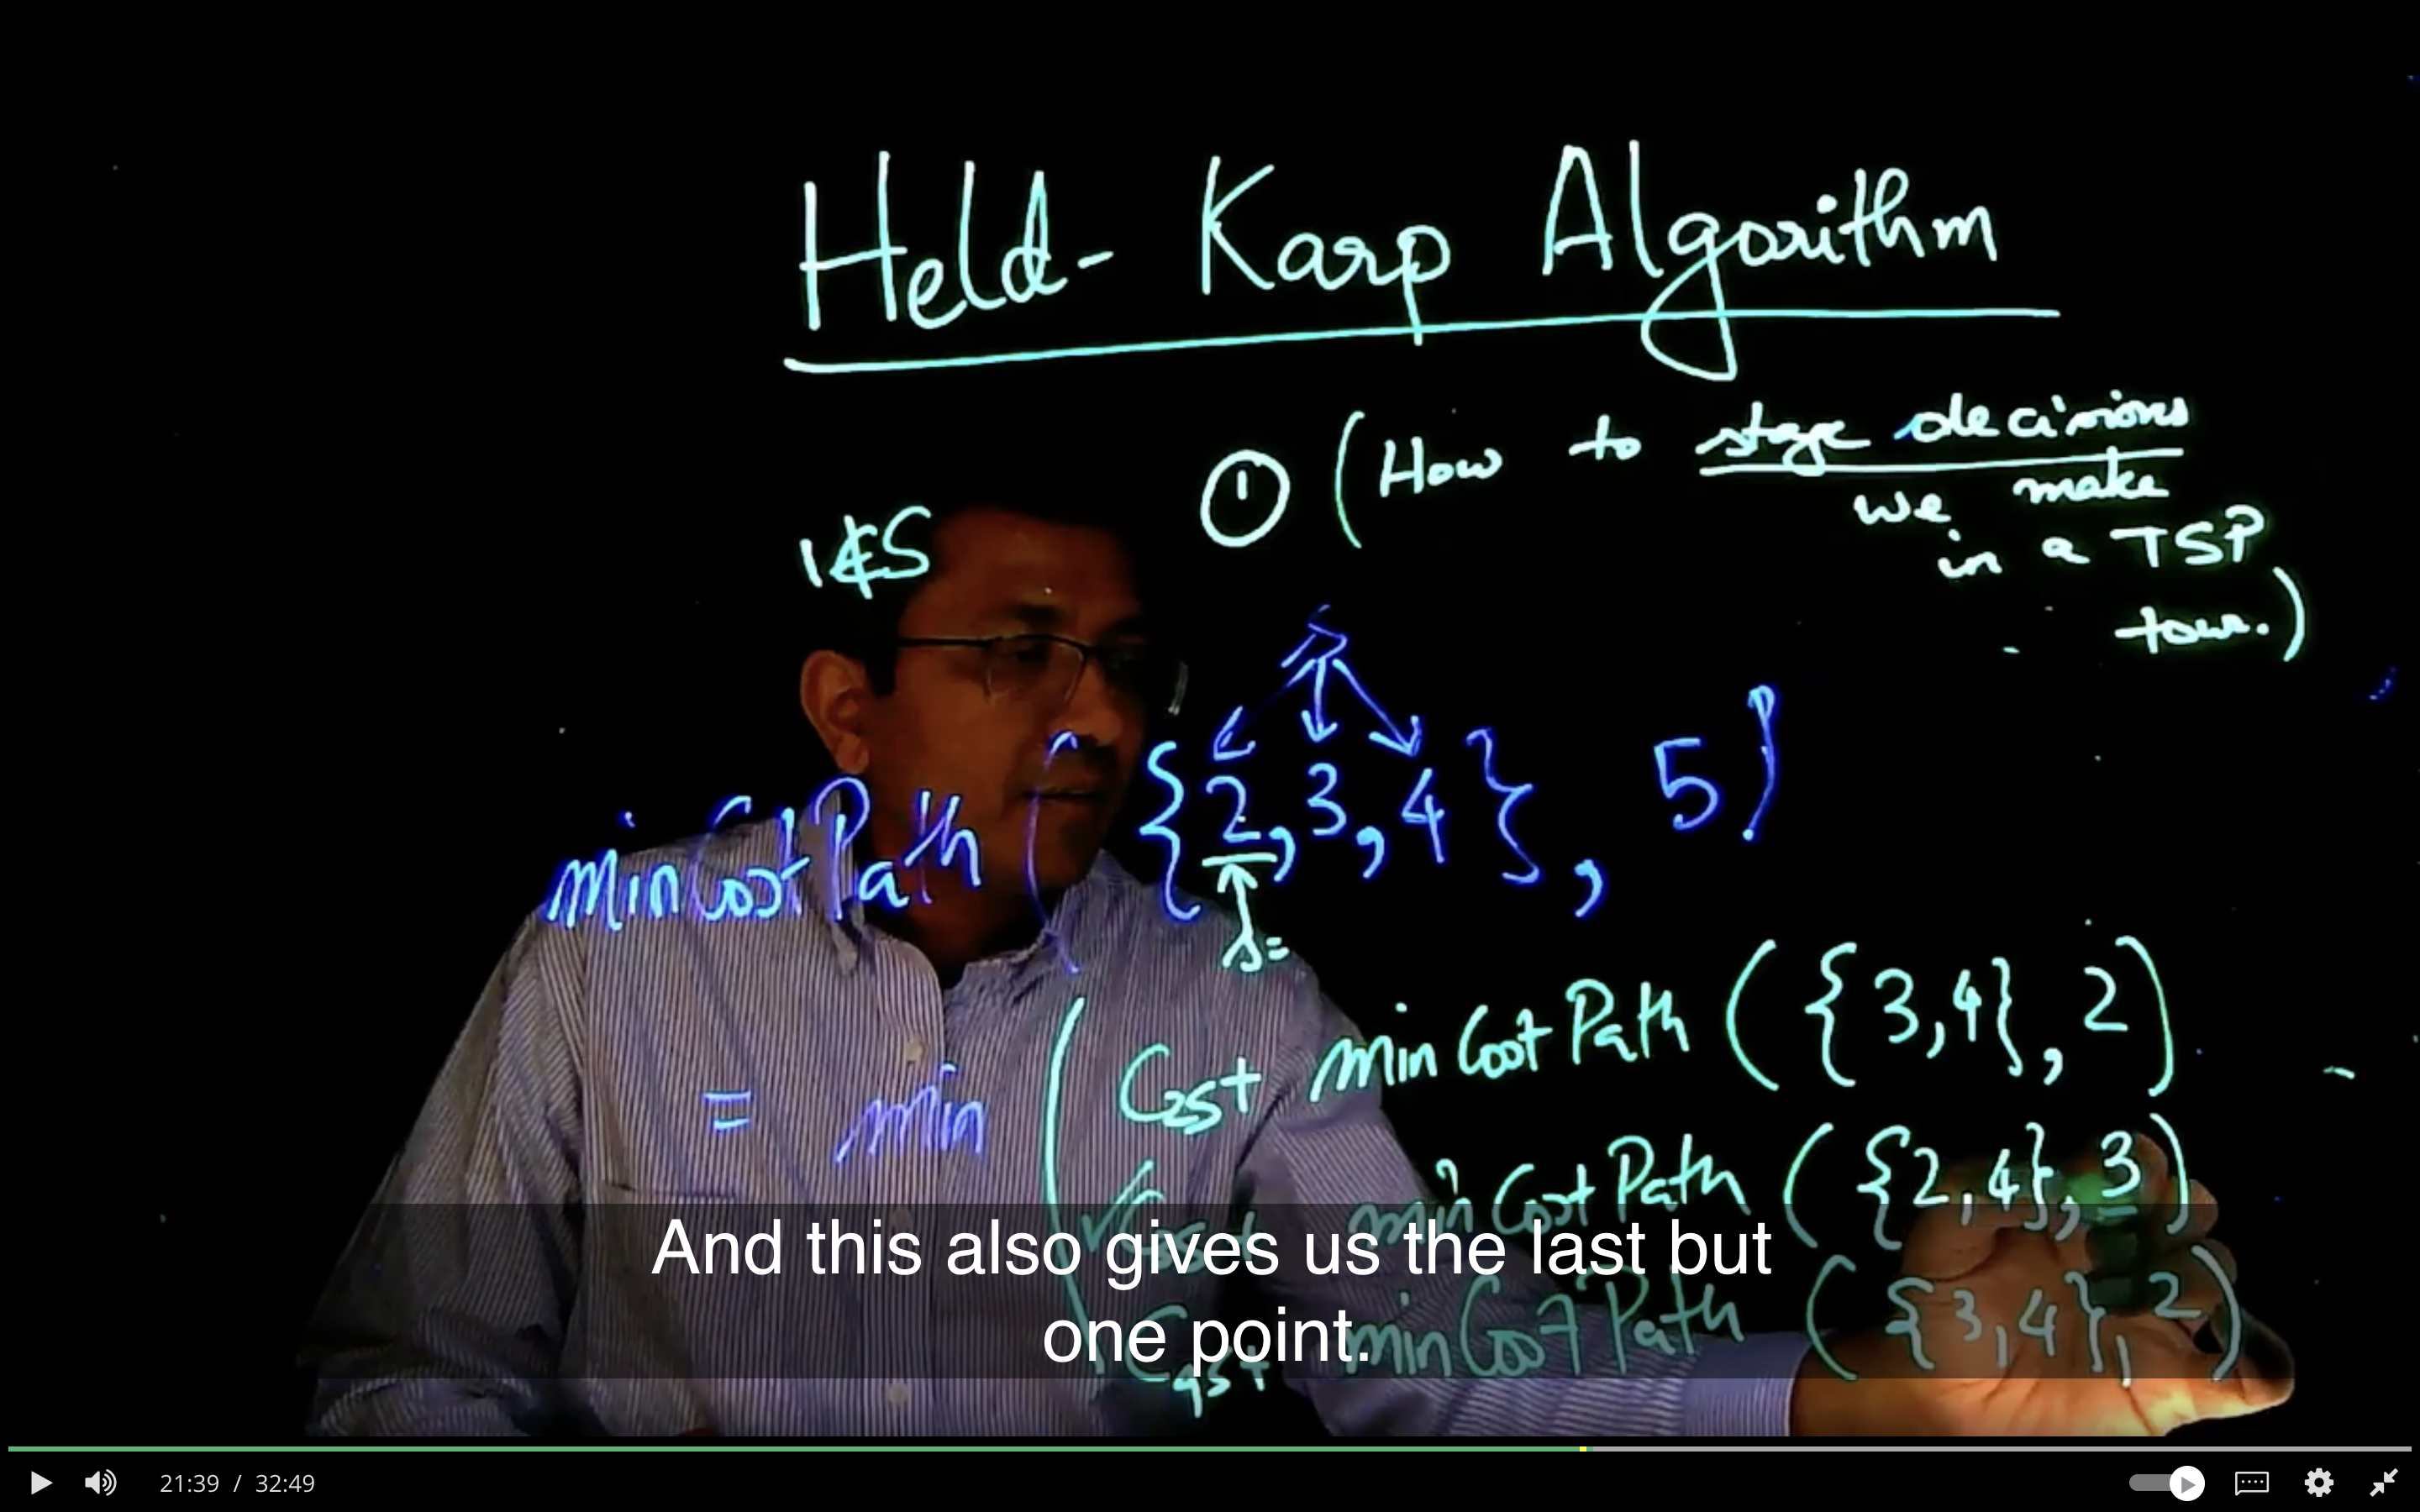 Held- Karp Algorithm
① (How to stage decisions
we make
in a TSP
tour.)
1∉S
minCostPath ( {2, 3, 4}, 5)
= min ( Cost minCostPath ({3,4}, 2)
minCostPath ({2,4}, 3)
Cost minCostPath ({3,4}, 2)
And this also gives us the last but
one point.
21:39 / 32:49